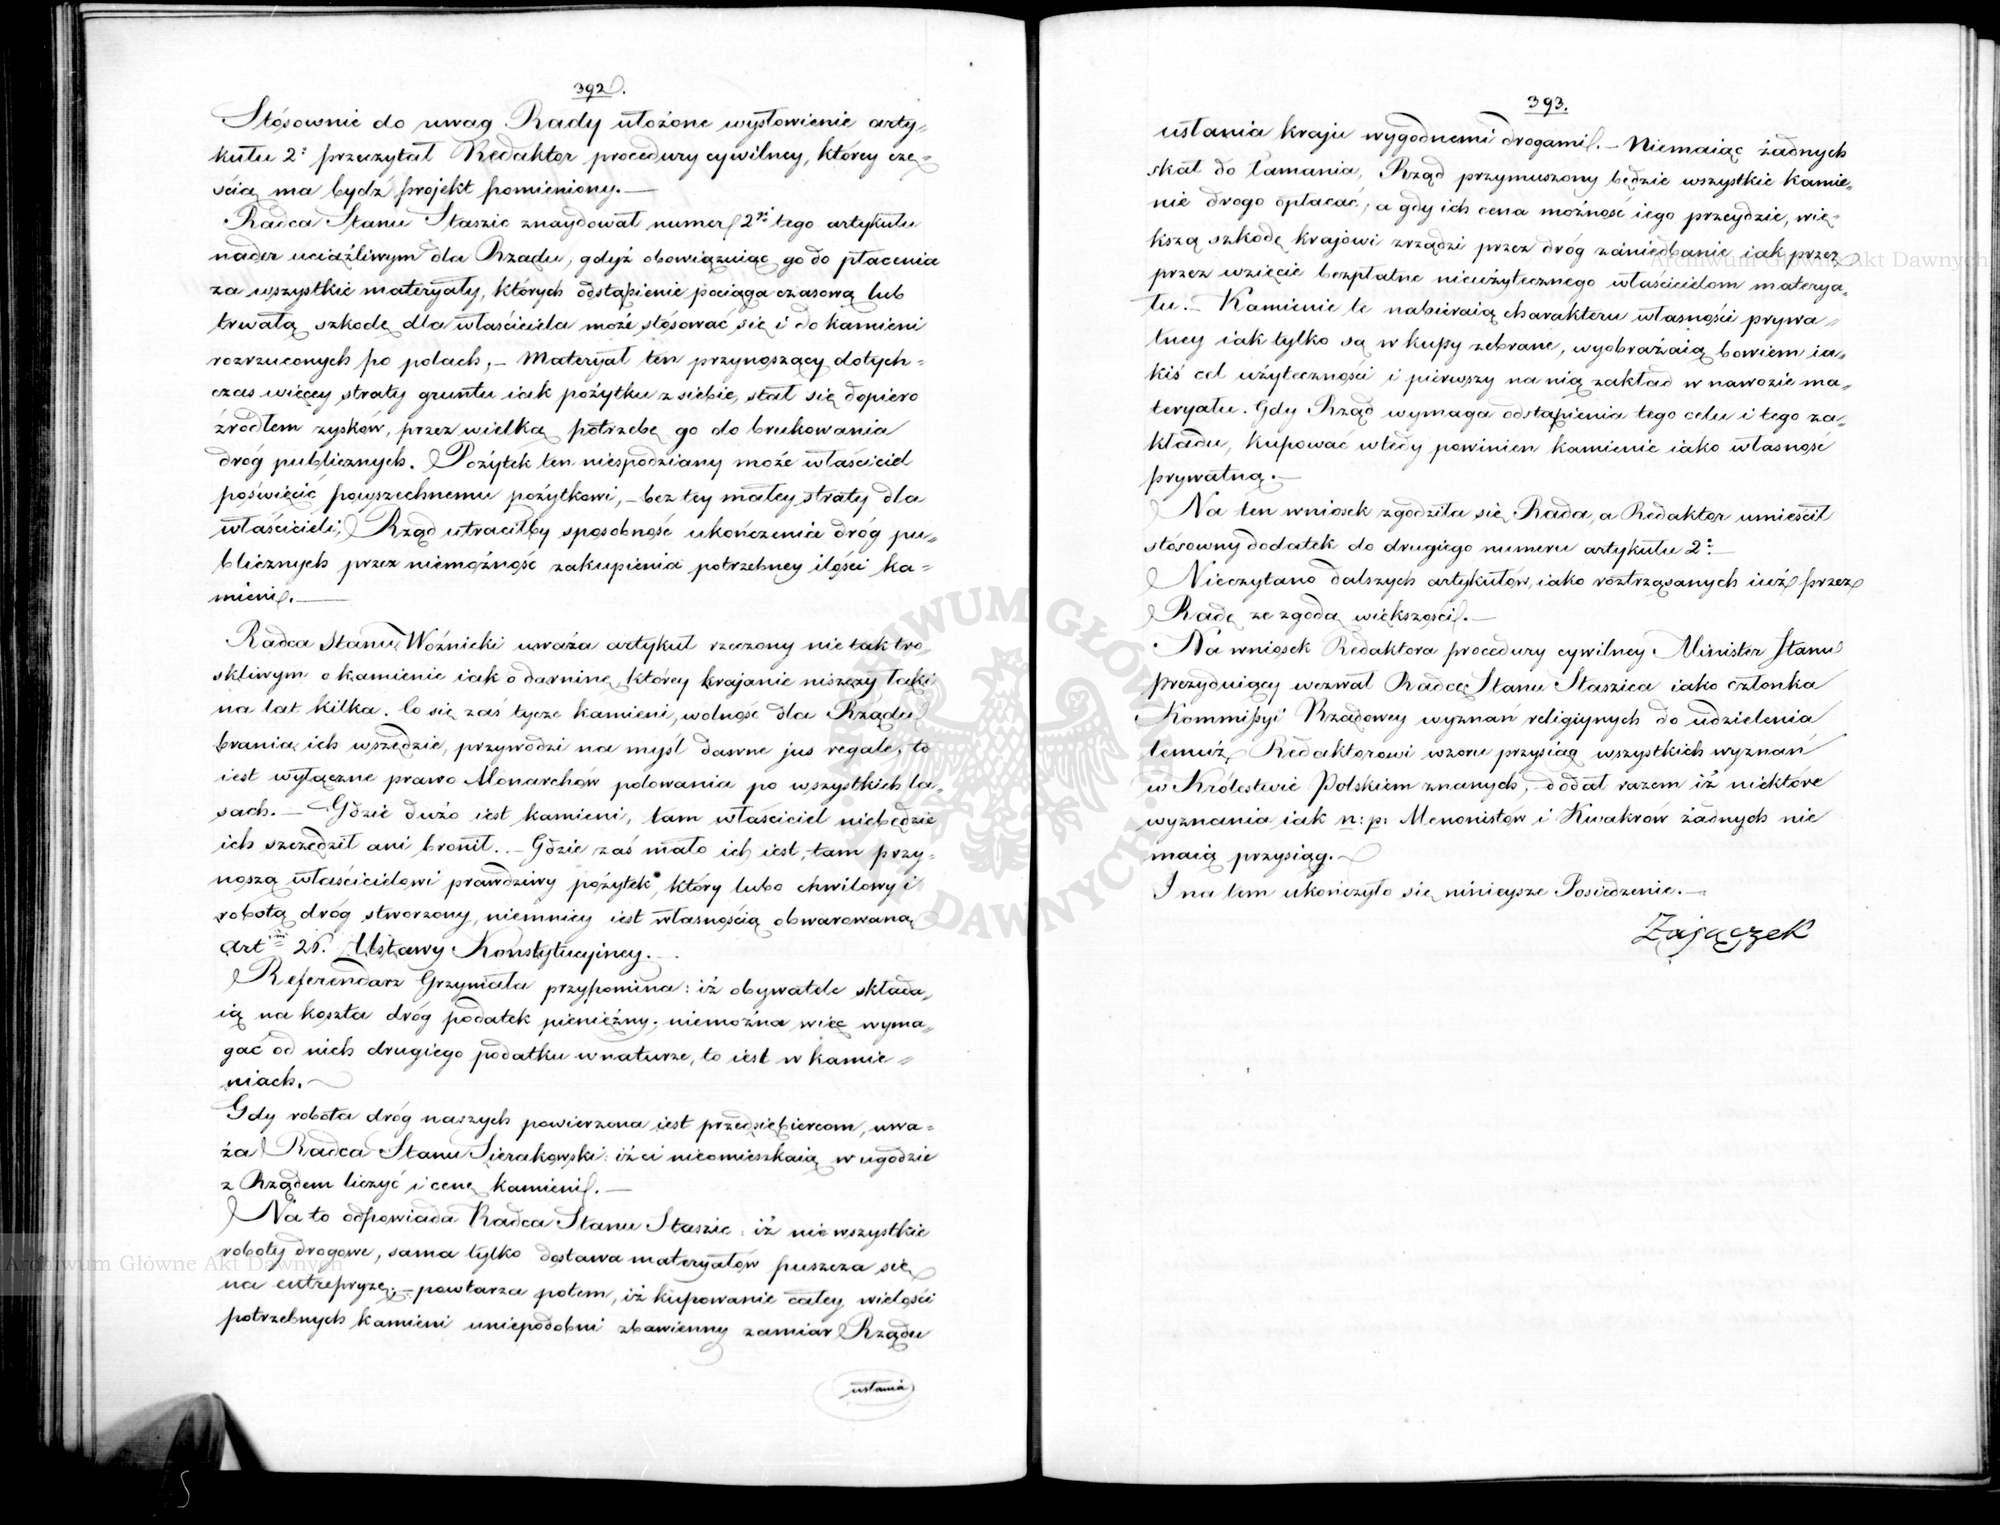 392.
Stósownie do uwag Rady ułożone wysłowienie arty„
kułu 2º przeczytał Redaktor procedury cywilney, którey czę„
ścią ma bydź projekt pomieniony.—
Radca Stanu Staszic znaydował numer 2gi tego artykułu
nader uciążliwym dla Rządu, gdyż obowiązuiąc go do płacenia
za wszystkie materyały, których odstąpienie pociąga czasową lub
trwałą szkodę dla właściciela może stósować się i do kamieni
rozrzuconych po polach,— Materyał ten przynoszący dotych„
czas więcey straty gruntu iak pożytku z siebie, stał się dopiero
źródłem zysków, przez wielką potrzebę go do brukowania
dróg publicznych. Pożytek ten niespodziany może właściciel
poświęcić powszechnemu pożytkowi,— bez tey małey straty dla
właścicieli, Rząd utraciłby sposobność ukończenia dróg pu„
blicznych przez niemożność zakupienia potrzebney ilości ka„
mieni.—
Radca Stanu Woźnicki uważa artykuł rzeczony nie tak tro„
skliwym o kamienie iak o darninę, którey krajanie niszczy łąki
na lat kilka. Co się zaś tycze kamieni, wolność dla Rządu
brania ich wszędzie, przywodzi na myśl dawne jus regale, to
iest wyłączne prawo Monarchów polowania po wszystkich la„
sach.— Gdzie dużo iest kamieni, tam właściciel niebędzie
ich szczędził ani bronił.— Gdzie zaś mało ich iest, tam przy„
noszą właścicielowi prawdziwy pożytek, który lubo chwilowy i
robotą dróg stworzony, niemniey iest własnością obwarowaną
Artm 26. Ustawy Konstytucyiney.—
Referendarz Grzymała przypomina: iż obywatele składa„
ią na koszta dróg podatek pieniężny; niemożna więc wyma„
gać od nich drugiego podatku w naturze, to iest w kamie„
niach.—
Gdy robota dróg naszych powierzona iest przedsiębiercom, uwa„
ża Radca Stanu Sierakowski: iż ci nieomieszkaią w ugodzie
z Rządem liczyć i cenę kamieni.—
Na to odpowiada Radca Stanu Staszic: iż nie wszystkie
roboty drogowe, sama tylko dostawa materyałów puszcza się
na entrepryzę;— powtarza potem, iż kupowanie całey wielości
potrzebnych kamieni uniepodobni zbawienny zamiar Rządu
usłania
393.
usłania kraju wygodnemi drogami.— Niemaiąc żadnych
skał do łamania, Rząd przymuszony będzie wszystkie kamie„
nie drogo opłacać, a gdy ich cena możność iego przeydzie, wię„
kszą szkodę krajowi zrządzi przez dróg zaniedbanie iak przez
przez wzięcie bezpłatne nieużytecznego właścicielom materya„
łu.— Kamienie te nabieraią charakteru własności prywa„
tney iak tylko są w kupy zebrane, wyobrażaią bowiem ia„
kiś cel użyteczności i pierwszy na nią zakład w nawozie ma„
teryału. Gdy Rząd wymaga odstąpienia tego celu i tego za„
kładu, kupować wtedy powinien kamienie iako własność
prywatną.—
Na ten wniosek zgodziła się Rada, a Redaktor umieścił
stósowny dodatek do drugiego numeru artykułu 2º.—
Nieczytano dalszych artykułów, iako roztrząsanych iuż przez
Radę ze zgodą większości.—
Na wniosek Redaktora procedury cywilney Minister Stanu
prezyduiący wezwał Radcę Stanu Staszica iako członka
Kommissyi Rządowey wyznań religiynych do udzielenia
temuż Redaktorowi wzoru przysiąg wszystkich wyznań
w Królestwie Polskiem znanych,— dodał razem iż niektóre
wyznania iak n: p: Menonistów i Kwakrów żadnych nie
maią przysiąg.—
I na tem ukończyło się ninieysze Posiedzenie.—
Zajączek
ARCHIWUM GŁÓWNE AKT DAWNYCH
Archiwum Główne Akt Dawnych
Archiwum Główne Akt Dawnych